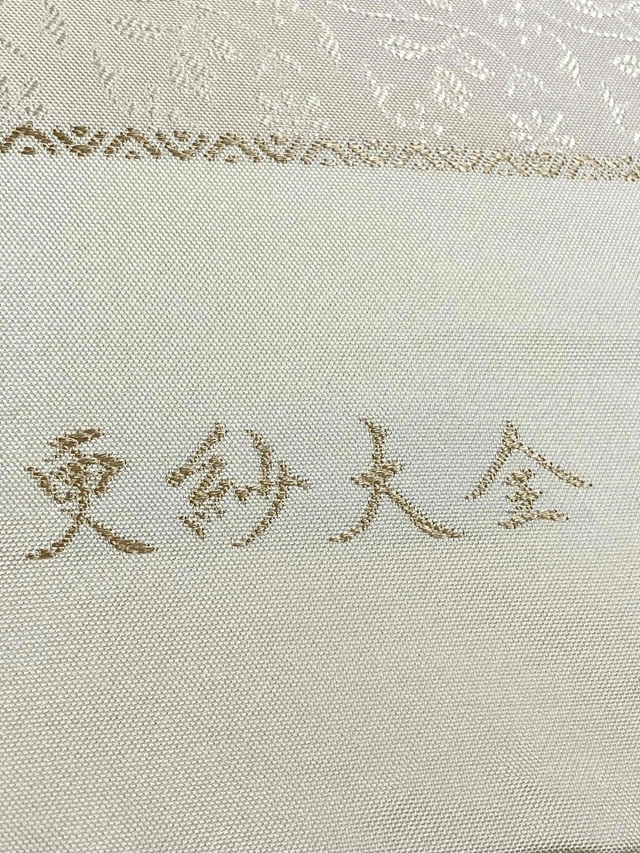 更紗大全